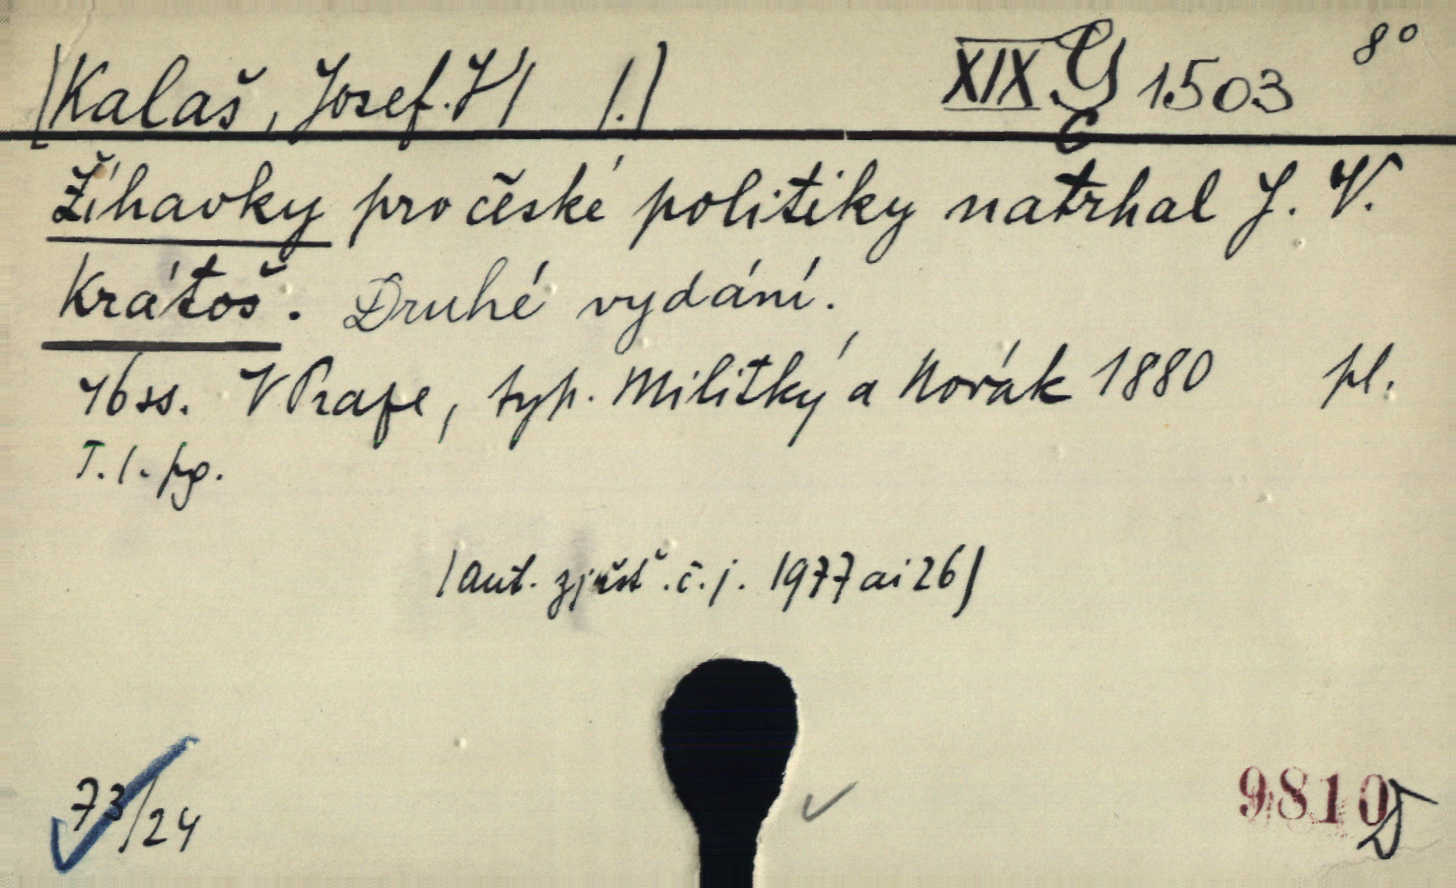 /Kalaš, Josef V/ /./ XIX G 1503 8°
c
Žíhavky pro české politiky natrhal J. V.
Krátoš. Druhé vydání.
46 ss. V Praze, typ. Militký a Novák 1880 pl.
T. l. pg.
/aut. zjišť. č. j. 1977 ai 26/
73/24 9810 D